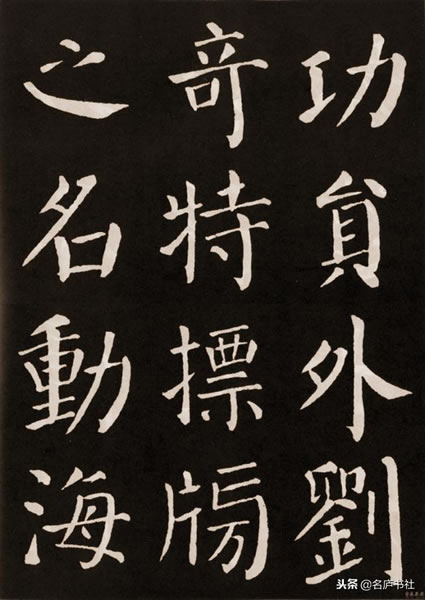 功貟外劉
竒特摽牓
之名動海
头条 @名庐书社